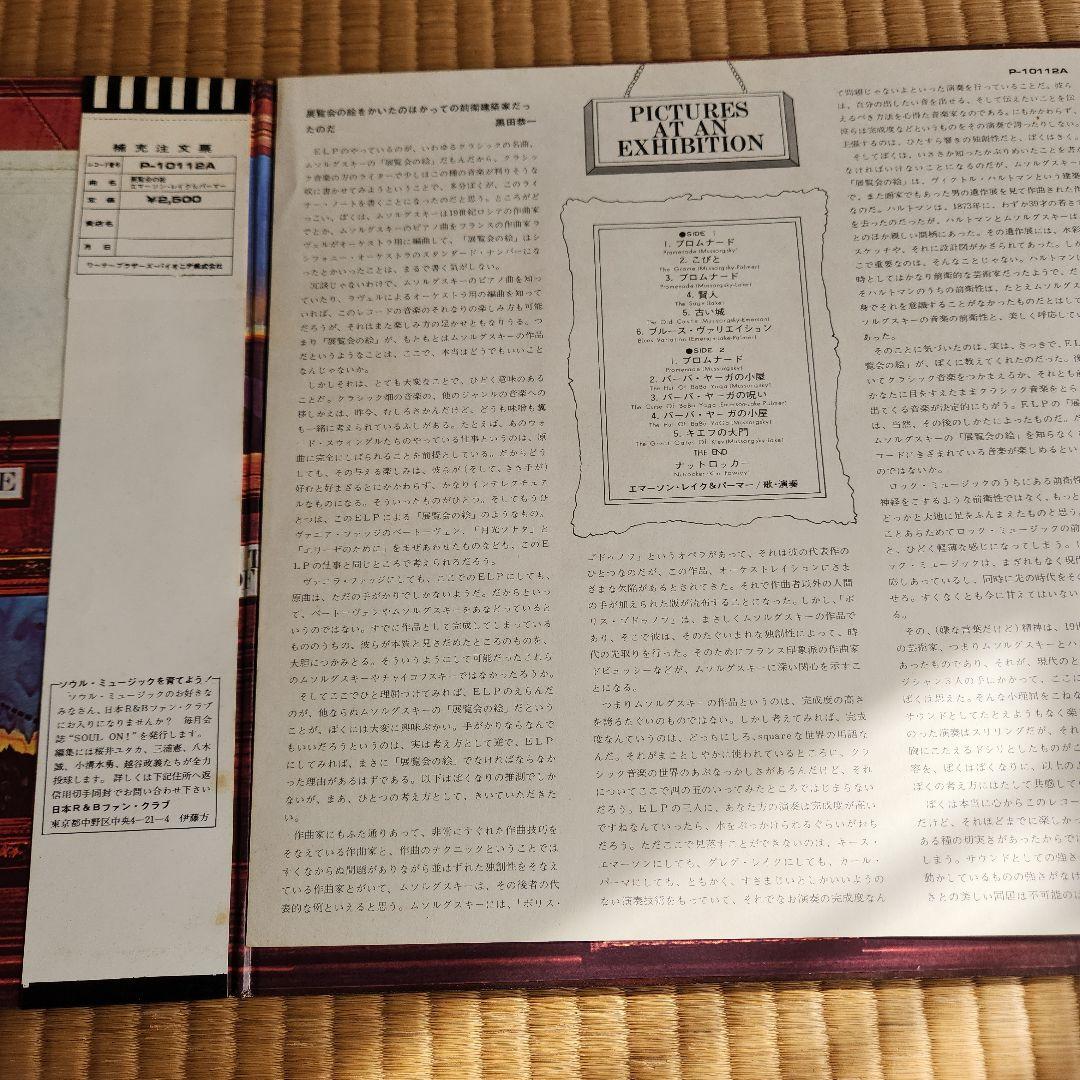 補充注文票
レコード番号 P-10112A
曲名 展覧会の絵
エマーソン・レイク&パーマー
定価 ¥2,500
貴店名
月日
ワーナーブラザーズ・パイオニア株式会社
ソウル・ミュージックを育てよう!
ソウル・ミュージックのお好きな
みなさん、日本R&Bファン・クラブ
にお入りになりませんか? 毎月会
誌“SOUL ON!”を発行します。
編集には桜井ユタカ、三浦憲、八木
誠、小清水勇、越谷政義たちが全力
投球します。詳しくは下記住所へ返
信用切手同封でお問い合わせ下さい
日本R&Bファン・クラブ
東京都中野区中央4-21-4 伊藤方
E
P-10112A
展覧会の絵をかいたのはかつての前衛建築家だっ
たのだ
黒田恭一
ELPのやっているのが、いわゆるクラシックの名曲、
ムソルグスキーの「展覧会の絵」だもんだから、クラシッ
ク音楽の方のライターで少しはこの種の音楽が判りそうな
奴に書かせてみようということで、多分ぼくが、このライ
ナー・ノートを書くことになったのだと思う。ところがど
っこい、ぼくは、ムソルグスキーは19世紀ロシアの作曲家
でとか、ムソルグスキーのピアノ曲をフランスの作曲家ラ
ヴェルがオーケストラ用に編曲して、「展覧会の絵」はシ
ンフォニー・オーケストラのスタンダード・ナンバーにな
ったとかいったことは、まるで書く気がしない。
冗談じゃないわけで、ムソルグスキーのピアノ曲を知っ
ていたり、ラヴェルによるオーケストラ用の編曲を知って
いれば、このレコードの音楽のそれなりの楽しみ方も可能
だろうが、それはまた楽しみ方の足かせともなりうる。つ
まり「展覧会の絵」が、もともとはムソルグスキーの作品
だというようなことは、ここで、本当はどうでもいいこと
なんじゃないか。
しかしそれは、とても大変なことで、ひどく意味のある
ことだ。クラシック畑の音楽の、他のジャンルの音楽への
移しかえは、昨今、むしろさかんだけど、どうも味噌も糞
も一緒に考えられているふしがある。たとえば、あのウォ
ード・スウィングルたちのやっている仕事というのは、原
曲に完全にしばられることを前提としている。だからどう
しても、その与える楽しみは、彼らが(そして、きき手が)
好むと好まざるとにかかわらず、かなりインテレクチュア
ルなものになる。そういったものがひとつ。そしてもうひ
とつは、このELPによる「展覧会の絵」のようなもの。
ヴァニラ・ファッジのベートーヴェン、「月光ソナタ」と
「エリーゼのために」をまぜあわせたものなども、このE
LPの仕事と同じところで考えられるだろう。
ヴァニラ・ファッジにしても、ここでのELPにしても、
原曲は、ただの手がかりでしかないようだ。だからといっ
て、ベートーヴェンやムソルグスキーをあなどっていると
いうのではない。すでに作品として完成してしまっている
もののうちの、彼らが本質と見さだめたところのものを、
大胆につかみとる。そういうようにして可能だったこれら
のムソルグスキーやチャイコフスキーではなかったろうか。
そしてここでひと理屈つけてみれば、ELPのえらんだ
のが、他ならぬムソルグスキーの「展覧会の絵」だという
ことが、ぼくには大変に興味ぶかい。手がかりならなんで
もいいだろうというのは、実は考え方として逆で、ELP
にしてみれば、まさに「展覧会の絵」でなければならなか
った理由があるはずである。以下はぼくなりの推測でしか
ないが、まあ、ひとつの考え方として、きいていただきた
い。
作曲家にもふた通りあって、非常にすぐれた作曲技巧を
そなえている作曲家と、作曲のテクニックということでは
すくなからぬ問題がありながら並はずれた独創性をそなえ
ている作曲家とがいて、ムソルグスキーは、その後者の代
表的な例といえると思う。ムソルグスキーには、「ボリス・
PICTURES
AT AN
EXHIBITION
●SIDE 1
1. プロムナード
Promenade (Mussorgsky)
2. こびと
The Gnome (Mussorgsky-Palmer)
3. プロムナード
Promenade (Mussorgsky-Lake)
4. 賢人
The Sage (Lake)
5. 古い城
The Old Castle (Mussorgsky-Emerson)
6. ブルース・ヴァリエイション
Blues Variation (Emerson-Lake-Palmer)
●SIDE 2
1. プロムナード
Promenade (Mussorgsky)
2. バーバ・ヤーガの小屋
The Hut Of Baba Yaga (Mussorgsky)
3. バーバ・ヤーガの呪い
The Curse Of Baba Yaga (Emerson-Lake-Palmer)
4. バーバ・ヤーガの小屋
The Hut Of Baba Yaga (Mussorgsky)
5. キエフの大門
The Great Gates Of Kiev (Mussorgsky-Lake)
THE END
ナットロッカー
エマーソン・レイク&パーマー/歌・演奏
ゴドゥノフ」というオペラがあって、それは彼の代表作の
ひとつなのだが、この作品、オーケストレイションにさま
ざまな欠陥があるとされてきた。それで作曲者以外の人間
の手が加えられた版が流布することになった。しかし、「ボ
リス・ゴドゥノフ」は、まさしくムソルグスキーの作品で
あり、そこで彼は、そのたぐいまれな独創性によって、時
代の先取りを行った。そのためにフランス印象派の作曲家
ドビュッシーなどが、ムソルグスキーに深い関心を示すこ
とになる。
つまりムソルグスキーの作品というのは、完成度の高さ
を誇るたぐいのものではない。しかし考えてみれば、完成
度なんていうのは、どっちにしろ、squareな世界の用語な
んだ。それがまことしやかに使われているところに、クラ
シック音楽の世界のあぶなっかしさがあるんだけど、それ
についてここで四の五のいってみたところではじまらない
だろう。ELPの三人に、あなた方の演奏は完成度が高い
ですねなんていったら、水をぶっかけられるぐらいがおち
だろう。ただここで見落すことができないのは、キース・
エマーソンにしても、グレグ・レイクにしても、カール・
パーマにしても、ともかく、すさまじいとしかいいようの
ない演奏技術をもっていて、それでなお演奏の完成度なん
て問題じゃないよといった演奏を行っていることだ。彼ら
は、自分の出したい音を出せる、そして伝えたいことを伝
えるべき方法を心得た音楽家なのである。にもかかわらず、
彼らは完成度などというものをその演奏で誇ったりしない。
主張するのは、ひたすら響きの独創性だと、ぼくはきく。
そしてぼくは、いささか知ったかぶりめいたことを書か
なければいけないことになるのだが、ムソルグスキーの
「展覧会の絵」は、ヴィクトル・ハルトマンという建築
で、また画家でもあった男の遺作展を見て作曲された作
なのだ。ハルトマンは、1873年に、わずか39才の若さで
を去ったのだったが、ハルトマンとムソルグスキーは
とのほか親しい間柄にあった。その遺作展には、水彩
スケッチや、それに設計図がかざられてあった。しか
こで重要なのは、そんなことじゃない。ハルトマンは
時としてはかなり前衛的な芸術家だったようで、だ
そハルトマンのうちの前衛性は、たとえムソルグス
身でそれを意識することがなかったものだとはして
ソルグスキーの音楽の前衛性と、美しく呼応してい
あった。
そのことに気づいたのは、実は、さっきで、EL
覧会の絵」が、ぼくに教えてくれたのだった。後
いてクラシック音楽をつかまえるか、それとも前
かなたに目をすえたままクラシック音楽をとら
出てくる音楽が決定的にちがう。ELPの「展
は、当然、その後のしかたによったものだ。だ
ムソルグスキーの「展覧会の絵」を知らなくと
コードにきざまれている音楽が楽しめるとい
のではないか。
ロック・ミュージックのうちにある前衛性
神経をこするような前衛性ではなく、もっと
どっかと大地に足をふんまえたものと思う。
ことあらためてロック・ミュージックの前
と、ひどく軽薄な感じになってしまう。
ック・ミュージックは、まぎれもなく現代
応しあっているし、同時に先の時代をそく
せろ。すくなくとも今に甘えてはいない
る。
その、(嫌な言葉だけど)精神は、19世
の芸術家、つまりムソルグスキーとハ
あったものであり、それが、現代のと
ジシャン3人の手にかかって、ここに
ぼくは思えた。そんな小理屈をこねな
サウンドとしてたとえようもなく楽
のった演奏はスリリングだが、それ
腕にこたえるドシリとしたものがこ
容を、ぼくはぼくなりに、以上のこ
ぼくの考え方にはたして共感して
ぼくは本当に心からこのレコー
だけど、それほどまでに楽しかっ
ある種の切実さがあったからでは
しまう。サウンドとしての強さ
動かしているものの強さがなけ
さとの美しい同居は不可能のは